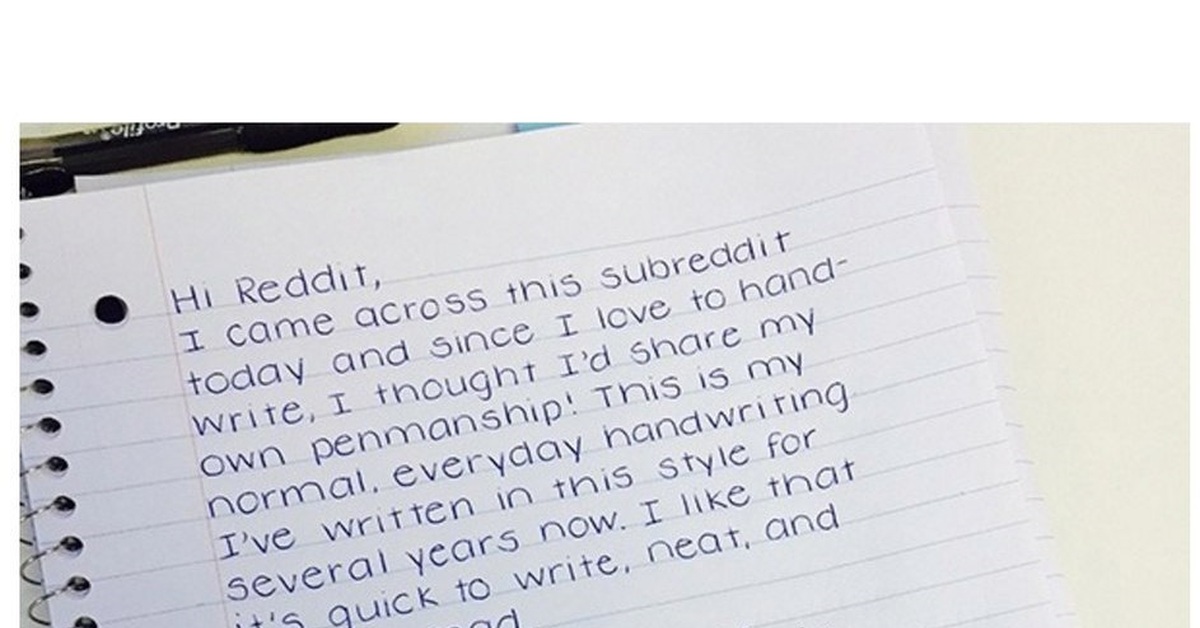 Profile
Hi Reddit,
I came across this subreddit
today and since I love to hand-
write, I thought I'd share my
own penmanship! This is my
normal, everyday handwriting
I've written in this style for
several years now. I like that
it's quick to write, neat, and